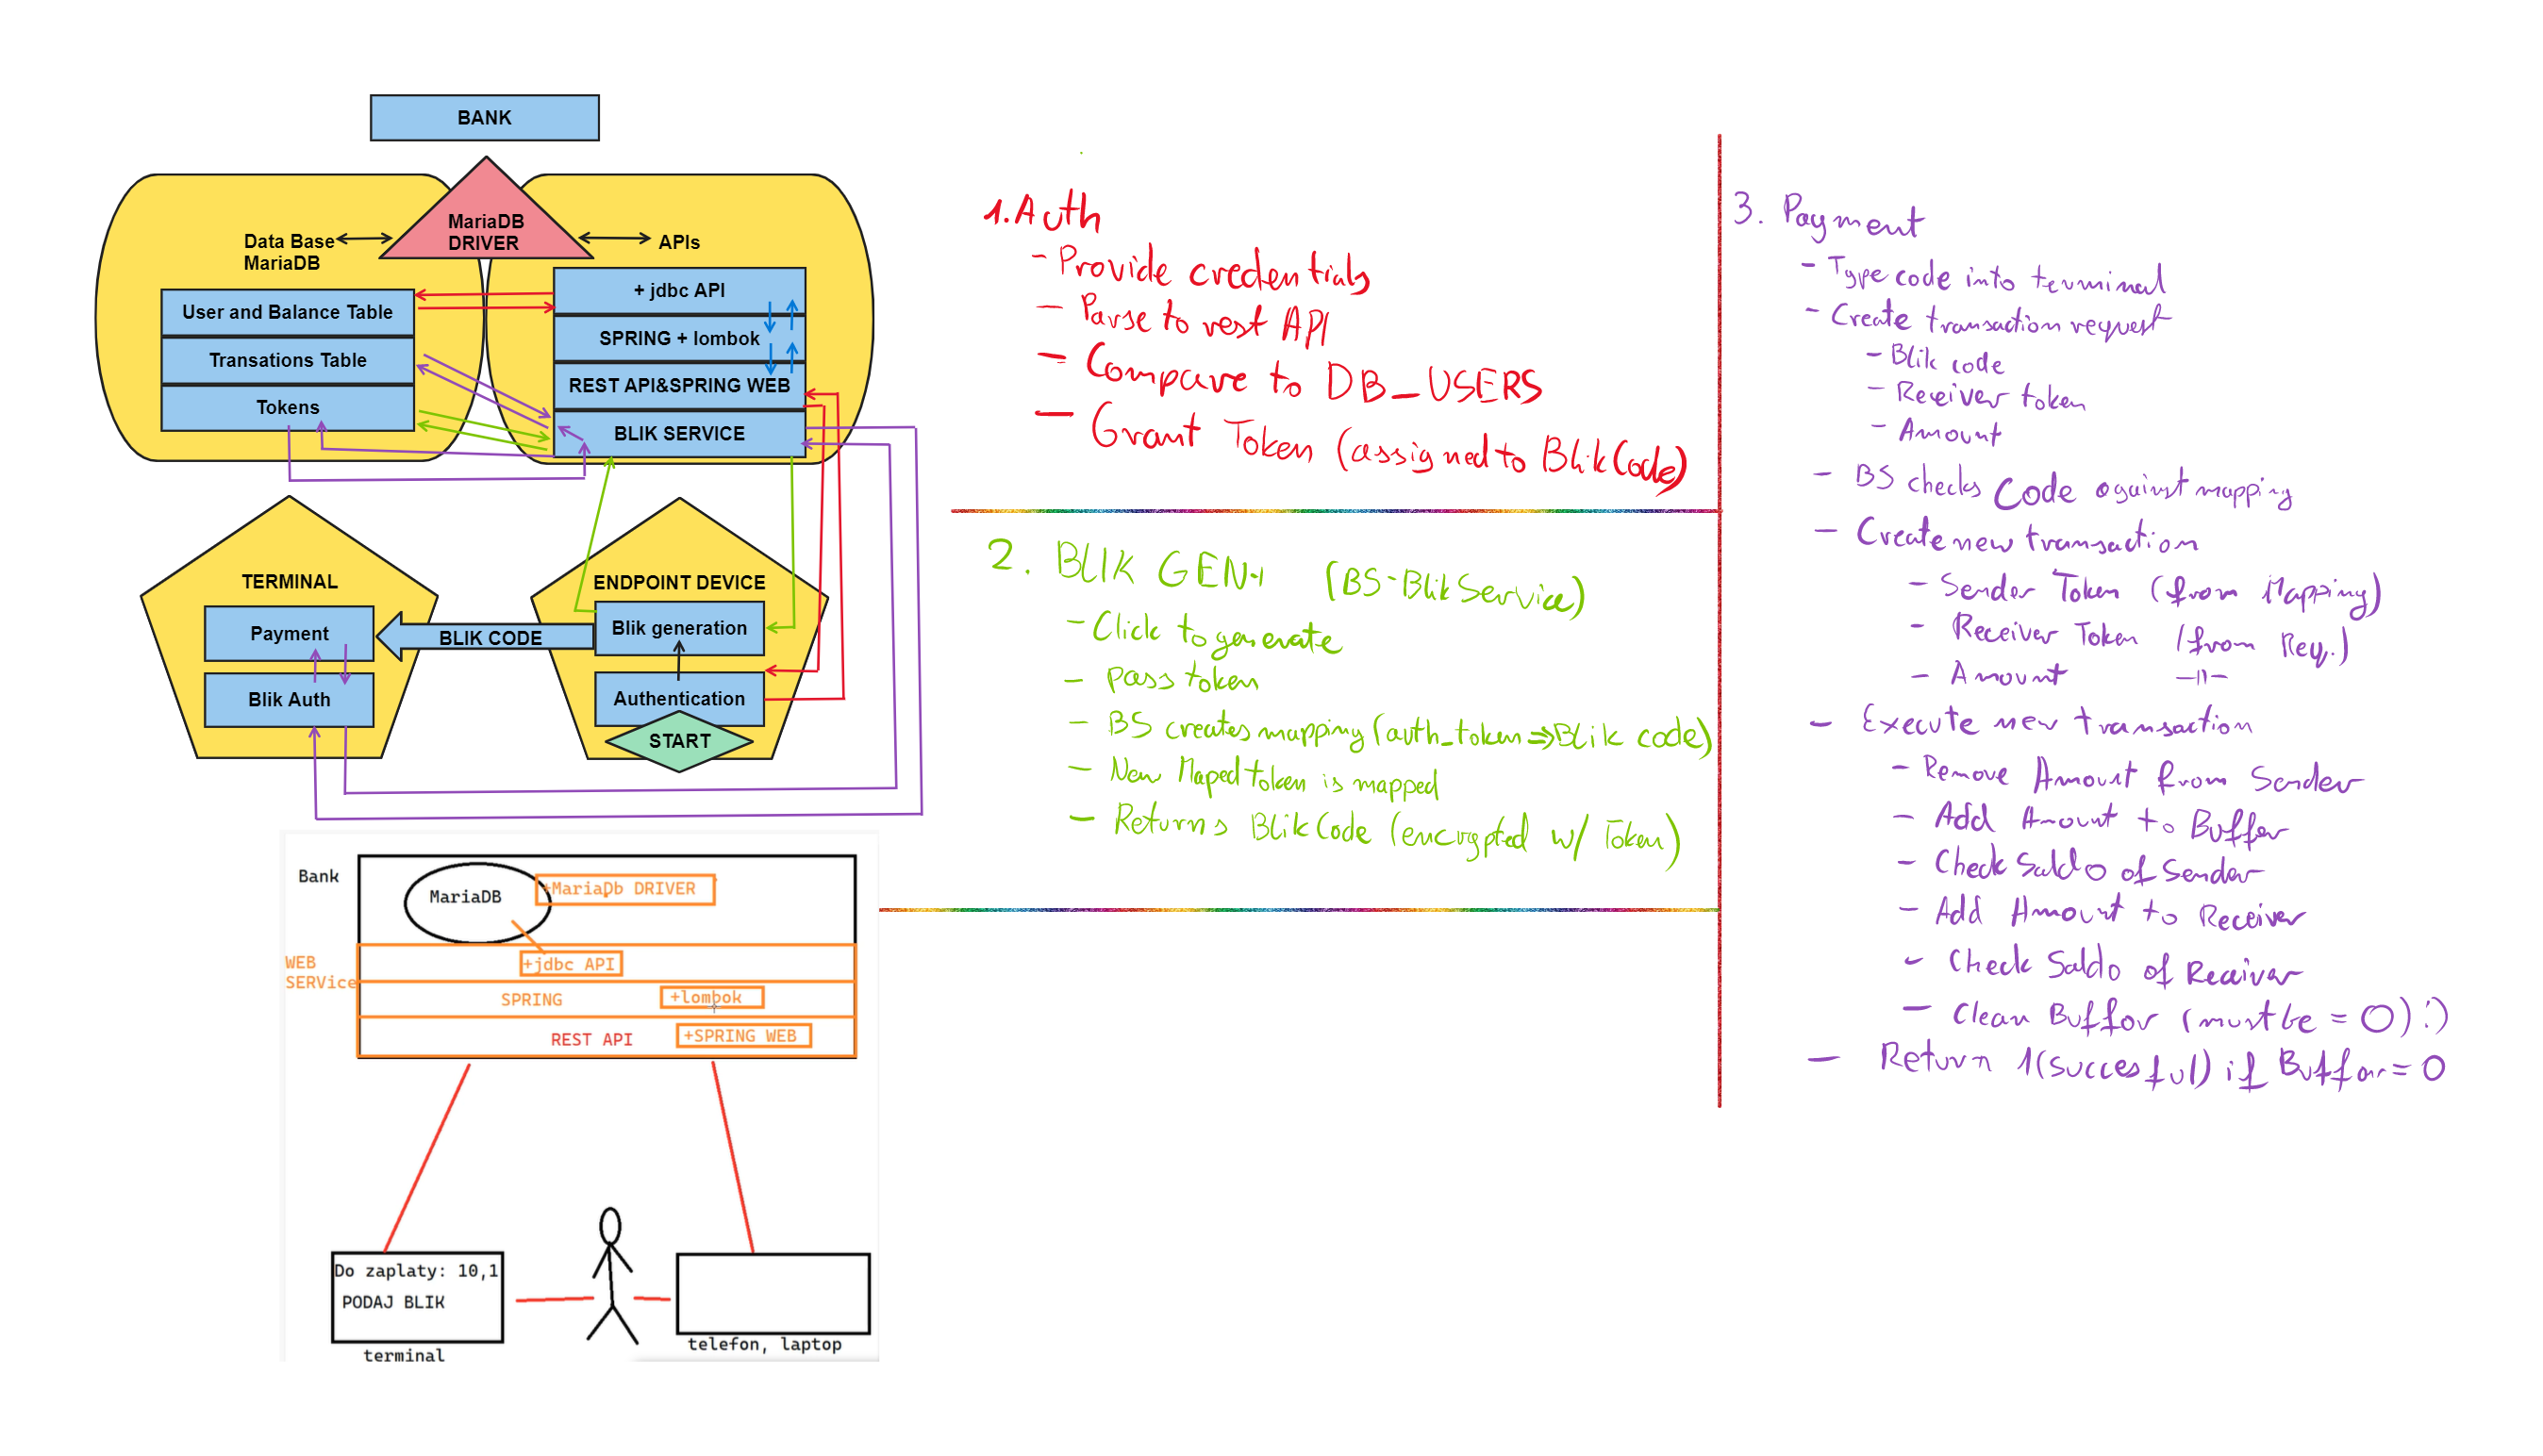 BANK
MariaDB
DRIVER
Data Base
MariaDB
APIs
User and Balance Table
Transations Table
Tokens
+ jdbc API
SPRING + lombok
REST API&SPRING WEB
BLIK SERVICE
TERMINAL
Payment
Blik Auth
BLIK CODE
ENDPOINT DEVICE
Blik generation
Authentication
START
Bank
MariaDB
+MariaDb DRIVER
WEB
SERVice
+jdbc API
SPRING
+lombok
REST API
+SPRING WEB
Do zaplaty: 10,1
PODAJ BLIK
terminal
telefon, laptop
1. Auth
- Provide credentials
- Parse to rest API
- Compare to DB_USERS
- Grant Token (assigned to BlikCode)
2. BLIK GEN (BS-BlikService)
- Click to generate
- Pass token
- BS creates mapping (auth_token => Blik code)
- New Maped token is mapped
- Returns BlikCode (encrypted w/ Token)
3. Payment
- Type code into terminal
- Create transaction request
- Blik code
- Receiver token
- Amount
- BS checks Code against mapping
- Create new transaction
- Sender Token (from Mapping)
- Receiver Token (from Req.)
- Amount -||-
- Execute new transaction
- Remove Amount from Sender
- Add Amount to Buffer
- Check Saldo of Sender
- Add Amount to Receiver
- Check Saldo of Receiver
- Clean Buffor (must be = 0) :)
- Return 1(Succesful) if Buffor = 0